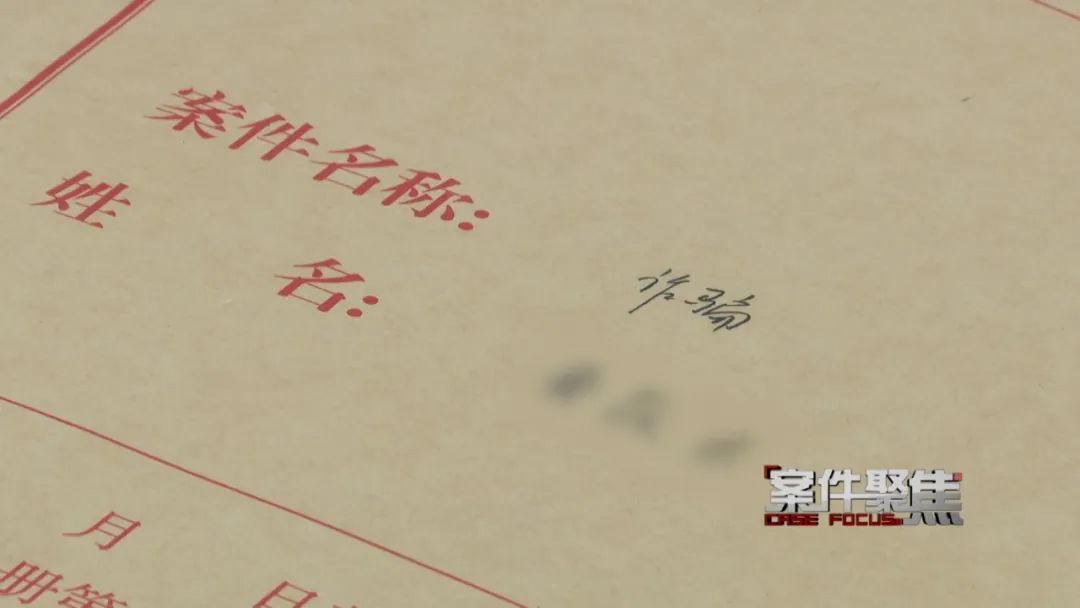 案件名称: 诈骗
姓名:
月 日
册第
案件聚焦
CASE FOCUS